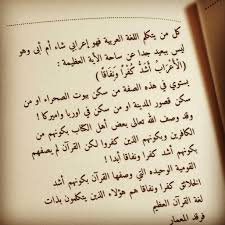 كل من يتكلم اللغة العربية فهو إعرابي شاء أم أبى وهو
ليس ببعيد جدا عن ساحة الأية العظيمة :
(الْأَعْرَابُ أَشَدُّ كُفْرًا وَنِفَاقًا)
يستوي في هذه الصفة من سكن بيوت الصحراء او من
سكن قصور المدينة او من سكن في اوربا واميركا !
وقد وصف الله تعالى بعض أهل الكتاب بكونهم من
الكافرين وبكونهم الذين كفروا لكن القرآن لم يصفهم
بكونهم أشد كفرا ونفاقا أبدا !
القومية الوحيده التي وصفها القرآن بكونهم أشد
الخلائق كفرا ونفاقا هم هؤلاء الذين يتكلمون بذات
لغة القرآن العظيم
فرقد المعمار